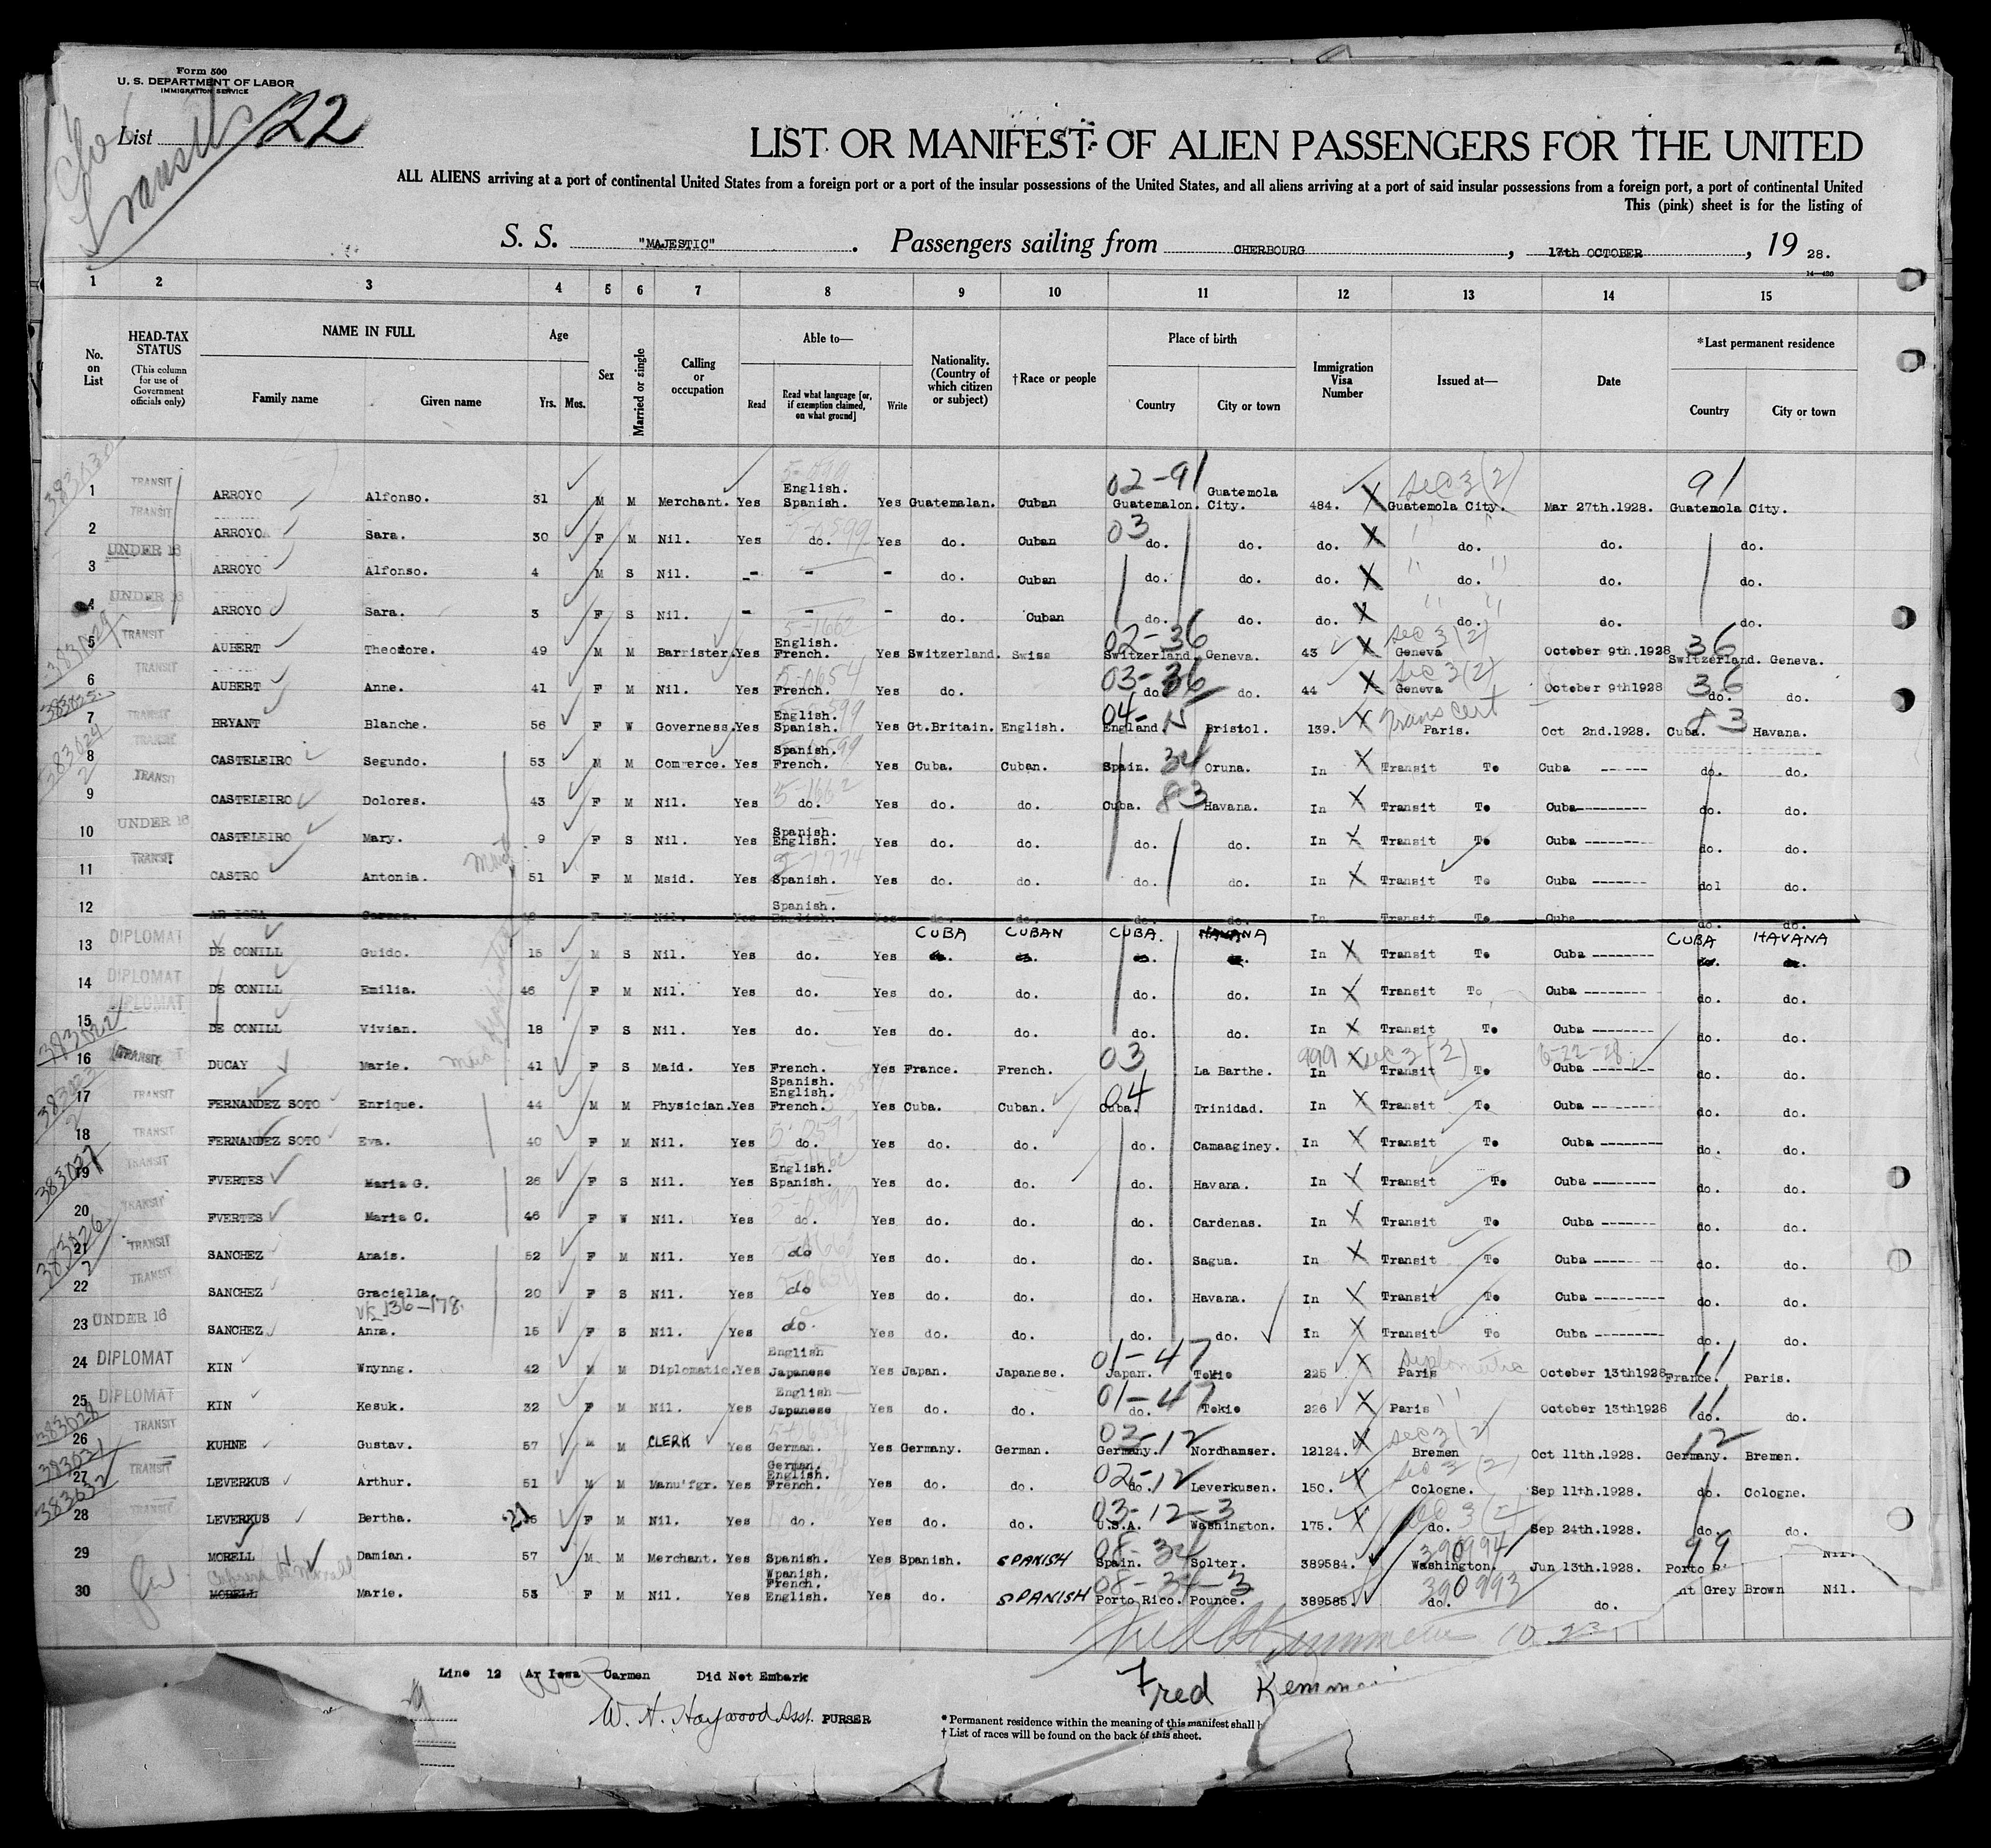 Form 500
U. S. DEPARTMENT OF LABOR
IMMIGRATION SERVICE
List 22
Transit
LIST OR MANIFEST OF ALIEN PASSENGERS FOR THE UNITED
ALL ALIENS arriving at a port of continental United States from a foreign port or a port of the insular possessions of the United States, and all aliens arriving at a port of said insular possessions from a foreign port, a port of continental United
This (pink) sheet is for the listing of
S. S. "MAJESTIC" . Passengers sailing from CHERBOURG , 17th OCTOBER , 19 28.
1 2 3 4 5 6 7 8 9 10 11 12 13 14 15
No. on List HEAD-TAX STATUS (This column for use of Government officials only) NAME IN FULL Family name Given name Age Yrs. Mos. Sex Married or single Calling or occupation Able to— Read Read what language [or, if exemption claimed, on what ground] Write Nationality. (Country of which citizen or subject) †Race or people Place of birth Country City or town Immigration Visa Number Issued at— Date *Last permanent residence Country City or town
1 TRANSIT ARROYO Alfonso. 31 M M Merchant. Yes English. Spanish. Yes Guatemalan. Cuban 02-91 Guatemalon. Guatemola City. 484. X Sec 3(2) Guatemola City. Mar 27th.1928. 91 Guatemola City.
2 TRANSIT ARROYO Sara. 30 F M Nil. Yes do. Yes do. Cuban 03 do. do. do. X do. do. do.
3 UNDER 16 ARROYO Alfonso. 4 M S Nil. - - - do. Cuban do. do. do. X do. do. do.
4 UNDER 16 ARROYO Sara. 3 F S Nil. - - - do. Cuban do. do. do. X do. do. do.
5 TRANSIT AUBERT Theodore. 49 M M Barrister. Yes English. French. Yes Switzerland. Swiss 02-36 Switzerland. Geneva. 43 X Sec 3(2) Geneva October 9th.1928 36 Switzerland. Geneva.
6 TRANSIT AUBERT Anne. 41 F M Nil. Yes French. Yes do. 03-36 do. do. 44 X Sec 3(2) Geneva October 9th1928 36 do. do.
7 TRANSIT BRYANT Blanche. 56 F W Governess. Yes English. Spanish. Yes Gt.Britain. English. 04-N England. Bristol. 139. X Trans cert Paris. Oct 2nd.1928. 83 Cuba. Havana.
8 TRANSIT CASTELEIRO Segundo. 53 M M Commerce. Yes Spanish. French. Yes Cuba. Cuban. Spain. 34 Oruna. In X Transit To Cuba ------ do. do.
9 TRANSIT CASTELEIRO Dolores. 43 F M Nil. Yes do. Yes do. do. Cuba. 83 Havana. In X Transit To Cuba--------- do. do.
10 UNDER 16 CASTELEIRO Mary. 9 F S Nil. Yes Spanish. English. Yes do. do. do. do. In X Transit To Cuba -------- do. do.
11 TRANSIT CASTRO Antonia. 51 F M Msid. Yes Spanish. Yes do. do. do. do. In X Transit To Cuba ------- dol do.
12 AR IOSA Carmen. F M Nil. Yes Spanish. English. Yes do. do. do. do. In Transit To Cuba do. do.
13 DIPLOMAT DE CONILL Guido. 15 M S Nil. Yes do. Yes CUBA CUBAN CUBA. HAVANA In X Transit To Cuba -------- CUBA HAVANA
14 DIPLOMAT DE CONILL Emilia. 46 F M Nil. Yes do. Yes do. do. do. do. In X Transit To Cuba -------- do. do.
15 DIPLOMAT DE CONILL Vivian. 18 F S Nil. Yes do. Yes do. do. do. do. In X Transit To Cuba -------- do. do.
16 TRANSIT DUCAY Marie. 41 F S Maid. Yes French. Yes France. French. 03 La Barthe. 999 In X Sec 3(2) Transit To 6-22-28. Cuba -------- do. do.
17 TRANSIT FERNANDEZ SOTO Enrique. 44 M M Physician. Yes Spanish. English. French. Yes Cuba. Cuban. 04 Cuba. Trinidad. In X Transit To Cuba -------- do. do.
18 TRANSIT FERNANDEZ SOTO Eva. 40 F M Nil. Yes do. Yes do. do. do. Camaaginey. In X Transit To Cuba -------- do. do.
19 TRANSIT FVERTES Maria G. 26 F S Nil. Yes English. Spanish. Yes do. do. do. Havana. In X Transit To Cuba -------- do. do.
20 TRANSIT FVERTES Maria C. 46 F W Nil. Yes do. Yes do. do. do. Cardenas. In X Transit To Cuba ------- do. do.
21 TRANSIT SANCHEZ Anais. 52 F M Nil. Yes do Yes do. do. do. Sagua. In X Transit To Cuba -------- do. do.
22 TRANSIT SANCHEZ Graciella. 20 F S Nil. Yes do Yes do. do. do. Havana. In X Transit To Cuba --------- do. do.
23 UNDER 16 SANCHEZ Anna. 15 F S Nil. Yes do. Yes do. do. do. do. In X Transit To Cuba --------- do. do.
24 DIPLOMAT KIN Wnynng. 42 M M Diplomatic. Yes English Japanese Yes Japan. Japanese. 01-47 Japan. Tokio 225 X Paris October 13th1928 11 France. Paris.
25 DIPLOMAT KIN Kesuk. 32 F M Nil. Yes English Japanese Yes do. do. 01-47 do. Tokio 226 X Paris October 13th1928 11 do. do.
26 TRANSIT KUHNE Gustav. 57 M M CLERK Yes German. Yes Germany. German. 03-12 Germany. Nordhamser. 12124. X Sec 3(2) Bremen Oct 11th.1928. 12 Germany. Bremen.
27 TRANSIT LEVERKUS Arthur. 51 M M Manu'fgr. Yes German. English. French. Yes do. do. 02-12 do. Leverkusen. 150. X Sec 3(2) Cologne. Sep 11th.1928. do. Cologne.
28 TRANSIT LEVERKUS Bertha. F M Nil. Yes do. Yes do. do. 03-12-3 U.S.A. Washington. 175. X do. Sep 24th.1928. do. do.
29 MORELL Damian. 57 M M Merchant. Yes Spanish. Yes Spanish. SPANISH 08-34 Spain. Solter. 389584. 390994 Washington. Jun 13th.1928. 99 Porto R Nil.
30 MORELL Marie. 53 F M Nil. Yes Wpanish. French. English. Yes do. SPANISH 08-34-3 Porto Rico. Pounce. 389585. 390993 do. do. nt Grey Brown Nil.
Line 12 Ar Iosa Carmen Did Not Embark
Fred Kemm
W. H. Haywood Asst. PURSER
* Permanent residence within the meaning of this manifest shall b
† List of races will be found on the back of this sheet.